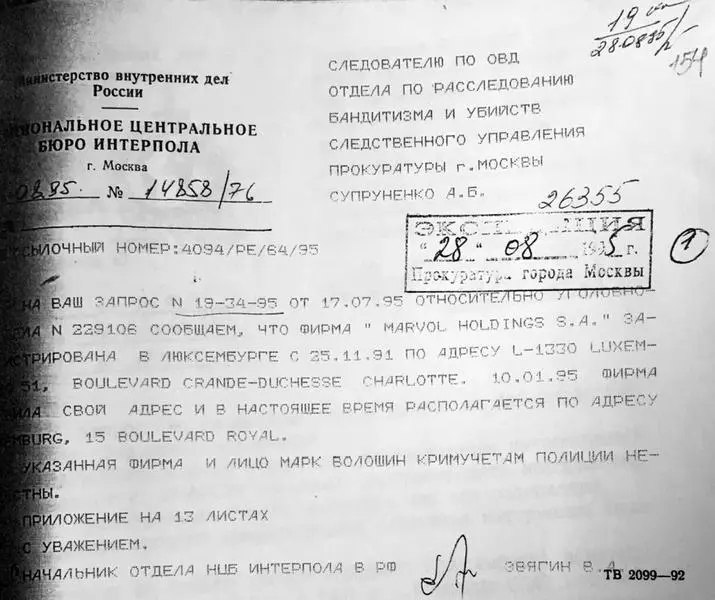 19
28.0895
154
инистерство внутренних дел
России
ИОНАЛЬНОЕ ЦЕНТРАЛЬНОЕ
БЮРО ИНТЕРПОЛА
г. Москва
08.95. № 14858/76
СЛЕДОВАТЕЛЮ ПО ОВД
ОТДЕЛА ПО РАССЛЕДОВАНИЮ
БАНДИТИЗМА И УБИЙСТВ
СЛЕДСТВЕННОГО УПРАВЛЕНИЯ
ПРОКУРАТУРЫ г.МОСКВЫ
СУПРУНЕНКО А.Б.
26355
ЭКСПЕДИЦИЯ
"28" 08 1995 г.
Прокуратура города Москвы
1
СЫЛОЧНЫЙ НОМЕР:4094/РЕ/64/95
НА ВАШ ЗАПРОС N 19-34-95 ОТ 17.07.95 ОТНОСИТЕЛЬНО УГОЛОВНО-
ЛА N 229106 СООБЩАЕМ, ЧТО ФИРМА " MARVOL HOLDINGS S.A." ЗА-
СТРИРОВАНА В ЛЮКСЕМБУРГЕ С 25.11.91 ПО АДРЕСУ L-1330 LUXEM-
51, BOULEVARD CRANDE-DUCHESSE CHARLOTTE. 10.01.95 ФИРМА
ИЛА СВОЙ АДРЕС И В НАСТОЯЩЕЕ ВРЕМЯ РАСПОЛАГАЕТСЯ ПО АДРЕСУ
MBURG, 15 BOULEVARD ROYAL.
УКАЗАННАЯ ФИРМА И ЛИЦО МАРК ВОЛОШИН КРИМУЧЕТАМ ПОЛИЦИИ НЕ-
СТНЫ.
ПРИЛОЖЕНИЕ НА 13 ЛИСТАХ
С УВАЖЕНИЕМ,
НАЧАЛЬНИК ОТДЕЛА НЦБ ИНТЕРПОЛА В РФ ЗВЯГИН В.А.
ТВ 2099—92